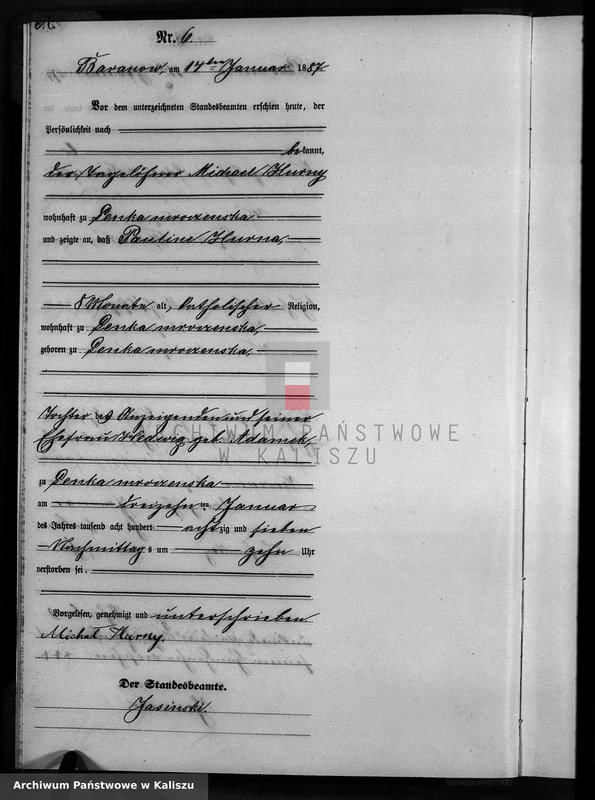 Nr. 6.
Baranow, am 14ten Januar 1887.
Vor dem unterzeichneten Standesbeamten erschien heute, der
Persönlichkeit nach
bekannt,
der Tagelöhner Michael Kurny
wohnhaft zu Lenka mroczenska
und zeigte an, daß Pauline Kurna,
8 Monate alt, katholischer Religion,
wohnhaft zu Lenka mroczenska,
geboren zu Lenka mroczenska,
Tochter des Anzeigenden und seiner
Ehefrau Hedwig geb. Adamek,
zu Lenka mroczenska
am dreizehnten Januar
des Jahres tausend acht hundert achtzig und sieben
Nachmittags um zehn Uhr
verstorben sei.
Vorgelesen, genehmigt und unterschrieben
Michał Kurny.
Der Standesbeamte.
Jasinski.
ARCHIWUM PAŃSTWOWE
W KALISZU
Archiwum Państwowe w Kaliszu